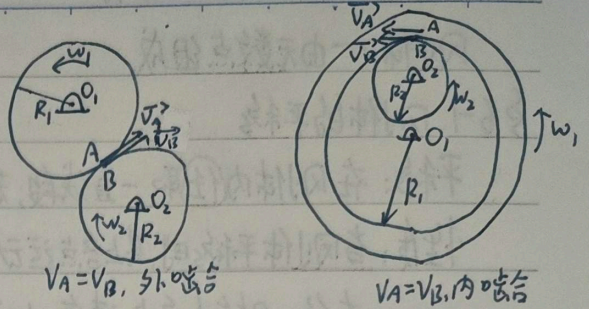 ω₁
O₁
R₁
A
B
V⃗A
V⃗B
ω₂
O₂
R₂
VA=VB, 外啮合
V⃗A
A
V⃗B
B
O₂
R₂
ω₂
O₁
ω₁
R₁
VA=VB, 内啮合